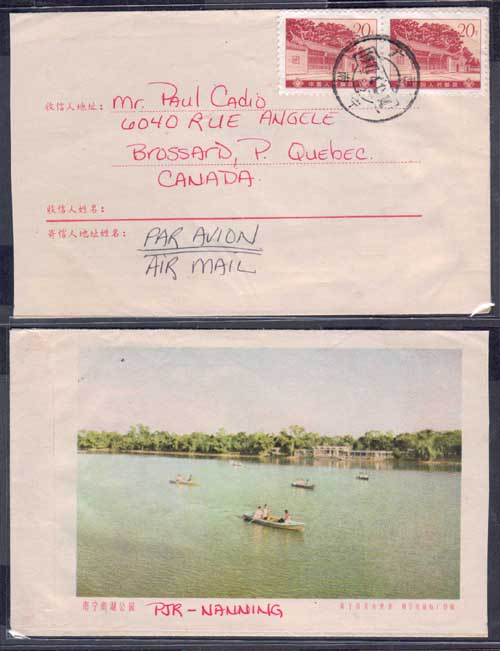 20分 20分
中国人民邮政 中国人民邮政
收信人地址: Mr. Paul Cadio
6040 RUE ANGELE
BROSSARD, P. QUEBEC.
CANADA.
收信人姓名:
寄信人地址姓名:
PAR AVION
AIR MAIL
南宁南湖公园 PJR - NANNING